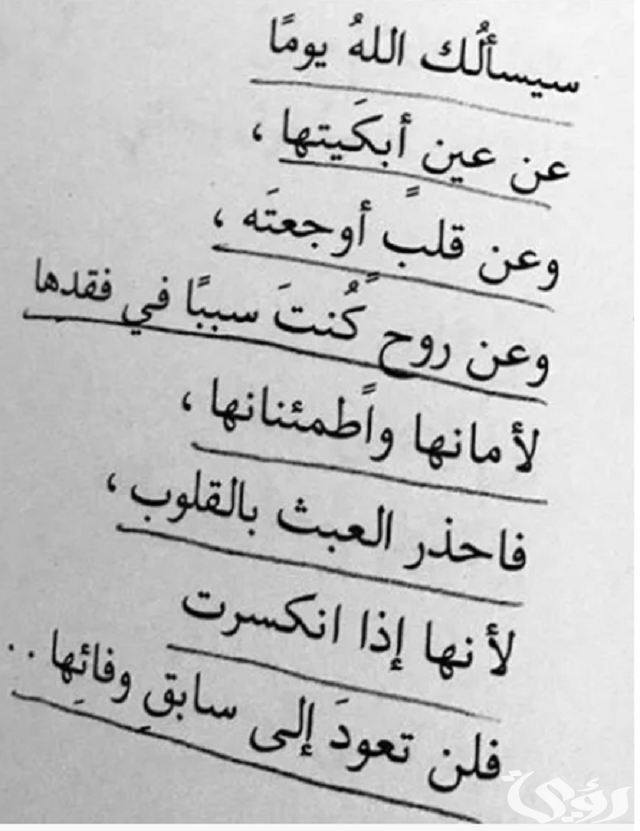 سيسألُك اللهُ يومًا
عن عين أبكَيتها ،
وعن قلبً أوجعتَه ،
وعن روحٍ كُنتَ سببًا في فقدها
لأمانها واًطمئنانها ،
فاحذر العبث بالقلوب ،
لأنها إذا انكسرت
فلن تعودَ إلى سابقِ وفائِها ..
رؤيا